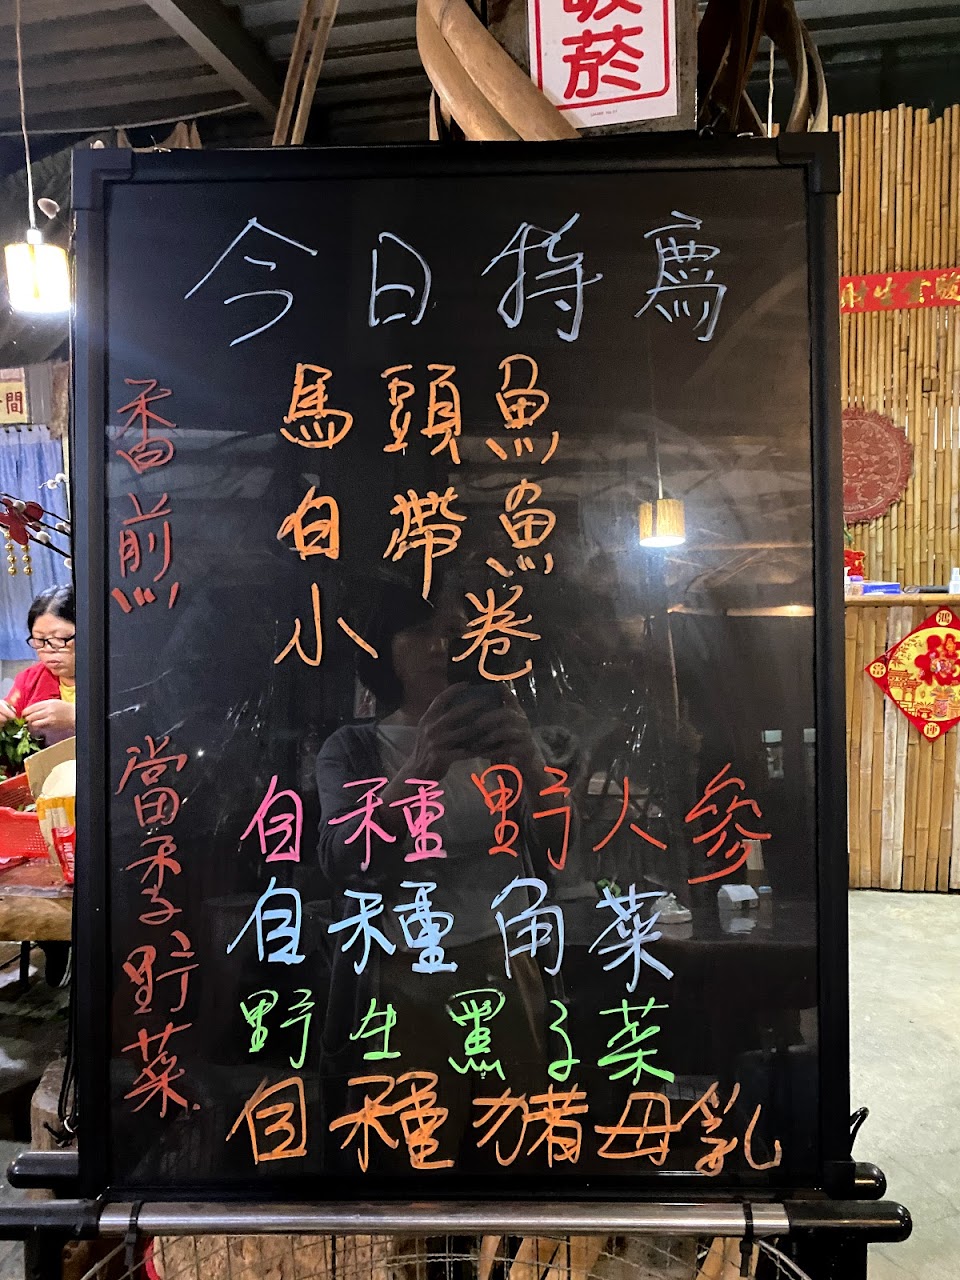 菸
今日特薦
香煎
馬頭魚
白帶魚
小卷
當季野菜
自種野人參
自種角菜
野生黑子菜
自種豬母乳
間
財生意駿
鴻
富
運